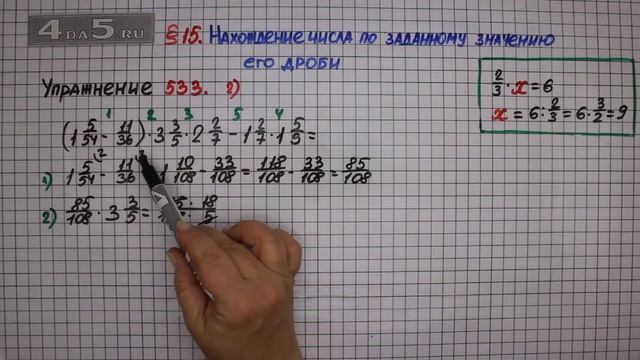 4DA5.RU
§15. Нахождение числа по заданному значению
его дроби
Упражнение 533. 2)
2/3 · x = 6
x = 6 : 2/3 = 6 · 3/2 = 9
1 2 3 5 4
(1 5/54 - 11/36) · 3 3/5 · 2 2/7 - 1 2/7 · 1 5/9 =
1) 1 5/54 - 11/36 1 10/108 - 33/108 = 118/108 - 33/108 = 85/108
2) 85/108 · 3 3/5 = · 18/5